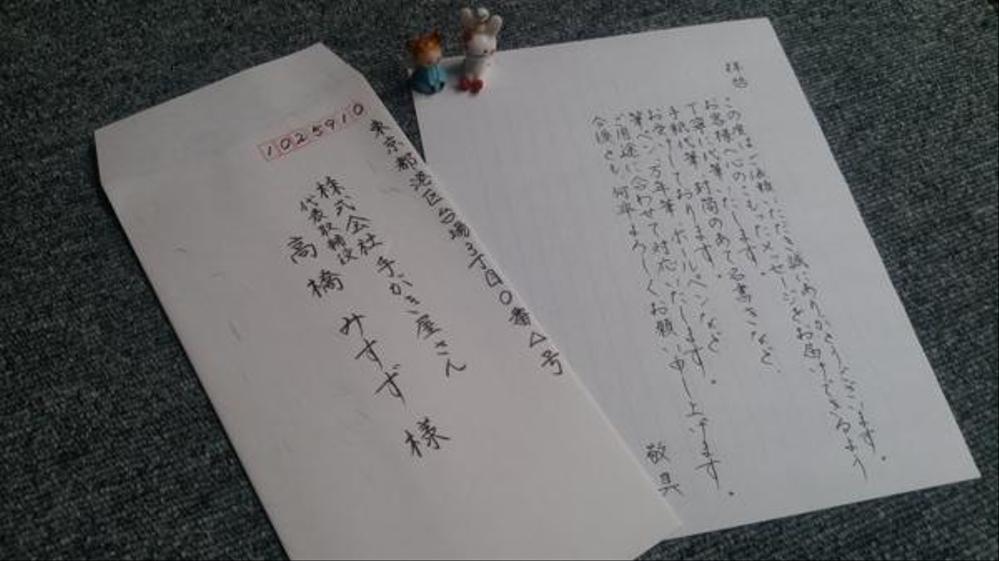 1025910
東京都港区台場3丁目0番△号
株式会社 手がき屋さん
代表取締役
高橋 みすず 様
拝啓
この度はご依頼いただき誠にありがとうございます。
お客様へ心のこもったメッセージをお届けできるよう
丁寧に代筆いたします。
手紙代筆、封筒のあて名書きなど、
お受けしております。
筆ペン、万年筆、ボールペンなど
ご用途に合わせて対応いたします。
今後とも何卒よろしくお願い申し上げます。
敬具